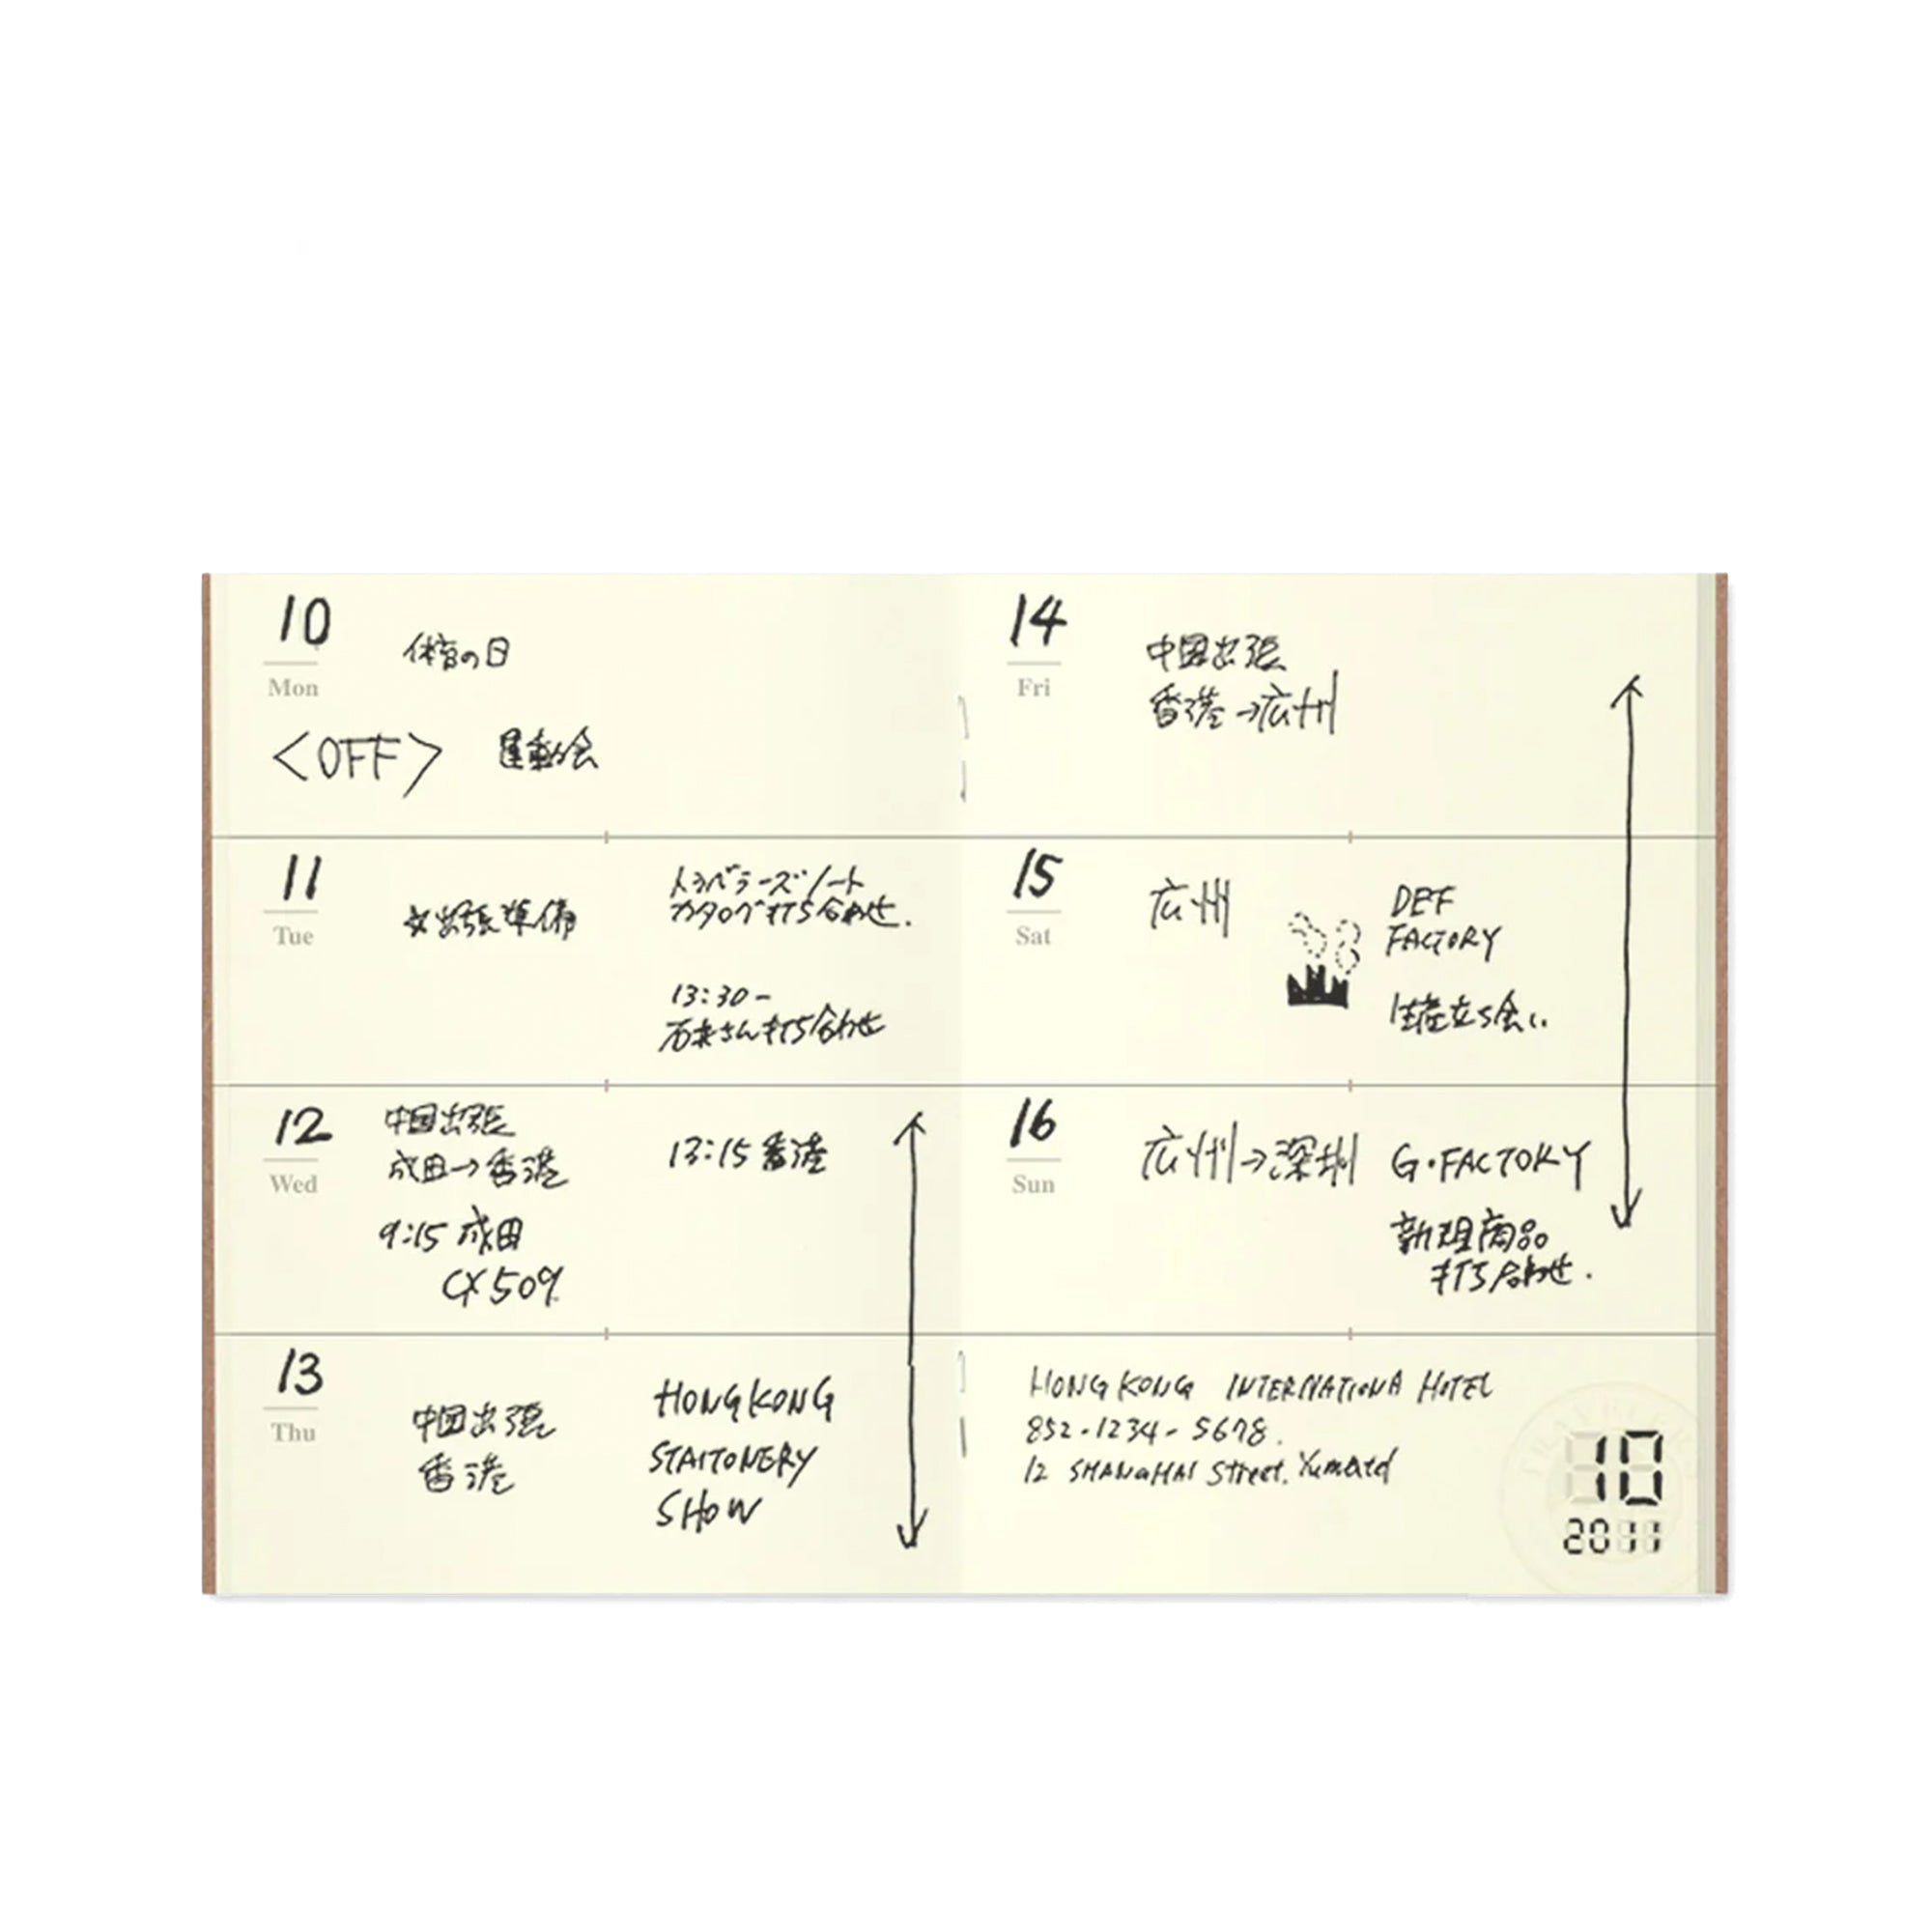 10
Mon
体育の日
<OFF> 運動会
11
Tue
出張準備
トラベラーズノート
カタログ打ち合わせ.
13:30-
さん打ち合わせ
12
Wed
中国出張
成田→香港
9:15 成田
CX509
13:15 香港
13
Thu
中国出張
香港
HONGKONG
STAITONERY
SHOW
14
Fri
中国出張
香港→広州
15
Sat
広州
DEF
FACTORY
生産立ち会い.
16
Sun
広州→深圳
G・FACTORY
新規商品
打ち合わせ.
HONG KONG INTERNATIONA HOTEL
852-1234-5678.
12 SHANGHAI Street. Yumatd
10
2011